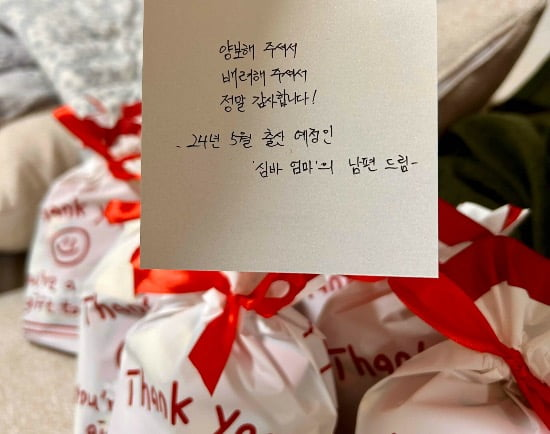 양보해 주셔서
배려해 주셔서
정말 감사합니다!
- 24년 5월 출산 예정인
'심바 엄마'의 남편 드림-
Thank
Thank
Thank
Thank